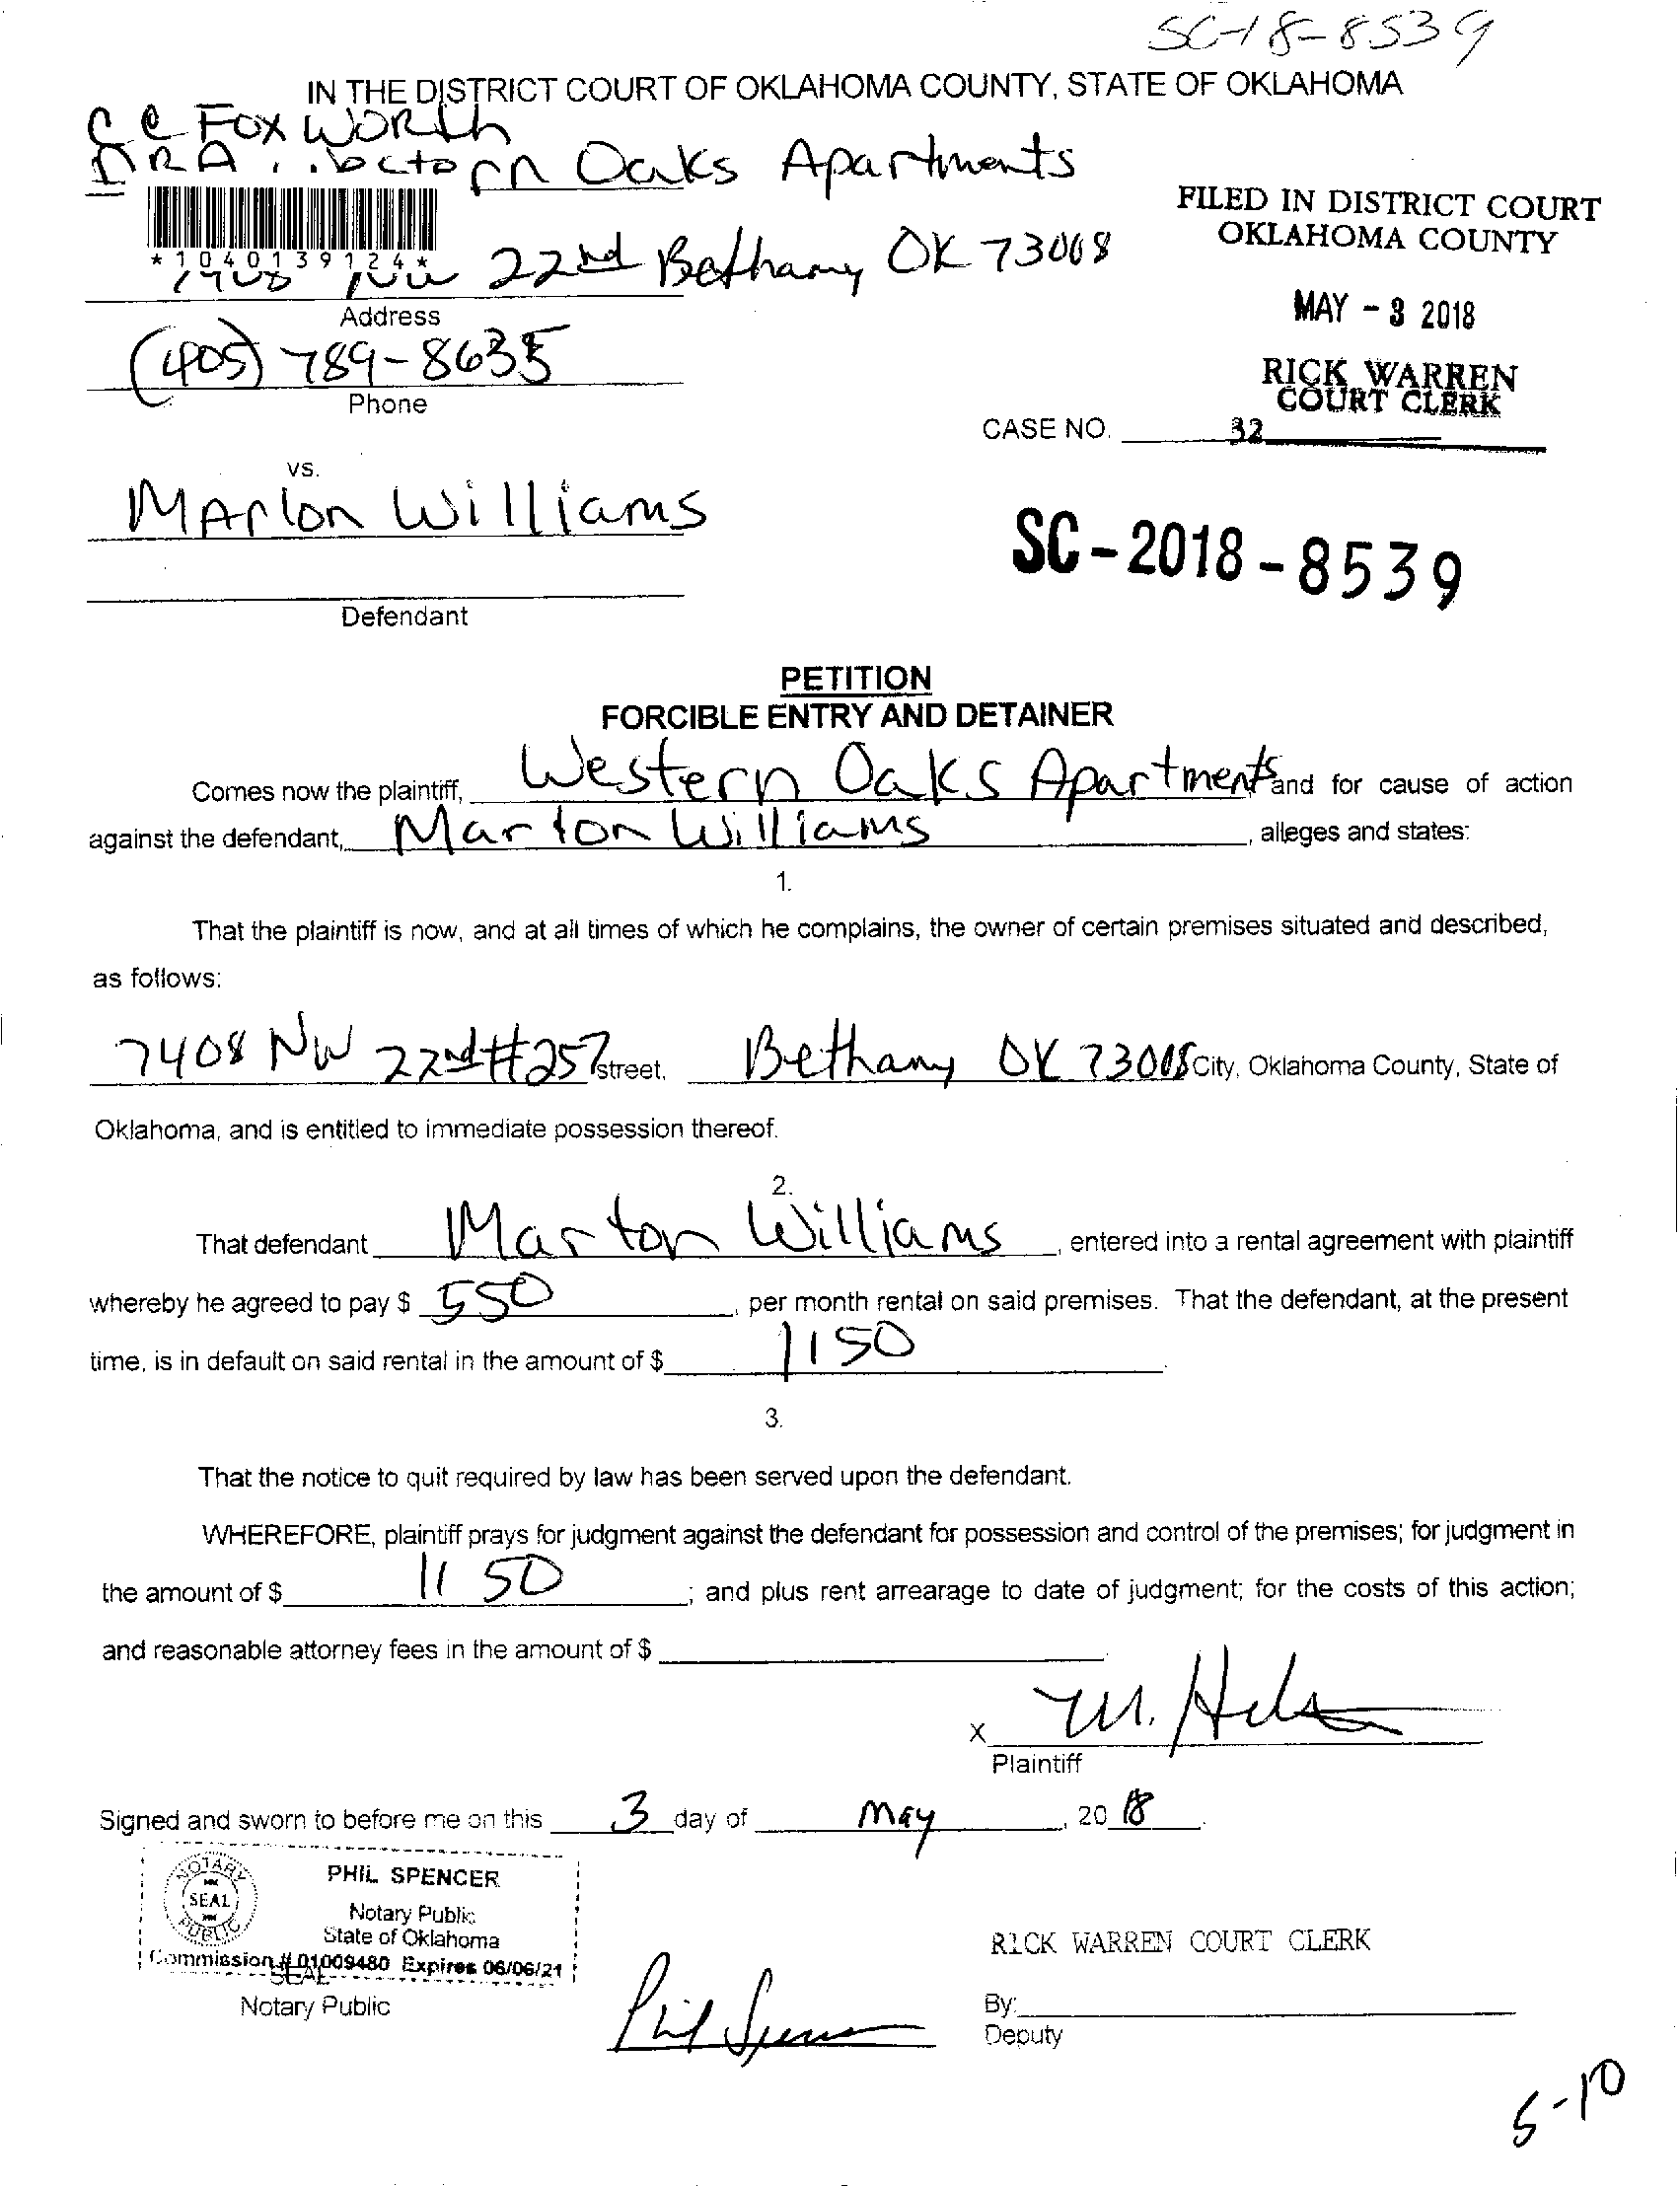 SC-18-8539
IN THE DISTRICT COURT OF OKLAHOMA COUNTY, STATE OF OKLAHOMA
CC FOX WORth
Oaks Apartments
FILED IN DISTRICT COURT
OKLAHOMA COUNTY
*1040139124*
NW 22nd Bethany OK 73008
MAY - 3 2018
Address
(405) 789-8635
RICK WARREN
COURT CLERK
Phone
CASE NO. 32
vs.
MArlon Williams
SC-2018-8539
Defendant
PETITION
FORCIBLE ENTRY AND DETAINER
Comes now the plaintiff, Western Oaks Apartments and for cause of action
against the defendant, Marlon Williams, alleges and states:
1.
That the plaintiff is now, and at all times of which he complains, the owner of certain premises situated and described,
as follows:
7408 NW 22nd #257 street, Bethany OK 73008 City, Oklahoma County, State of
Oklahoma, and is entitled to immediate possession thereof.
2.
That defendant Marlon Williams, entered into a rental agreement with plaintiff
whereby he agreed to pay $ 550, per month rental on said premises. That the defendant, at the present
time, is in default on said rental in the amount of $ 1150
3.
That the notice to quit required by law has been served upon the defendant.
WHEREFORE, plaintiff prays for judgment against the defendant for possession and control of the premises; for judgment in
the amount of $ 1150; and plus rent arrearage to date of judgment; for the costs of this action;
and reasonable attorney fees in the amount of $
X M.
Plaintiff
Signed and sworn to before me on this 3 day of May, 20 18.
NOTARY PUBLIC
SEAL
PHIL SPENCER
Notary Public
State of Oklahoma
Commission # 01009480 Expires 06/06/21
SEAL
Notary Public
Phil Spencer
RICK WARREN COURT CLERK
By:
Deputy
5-10